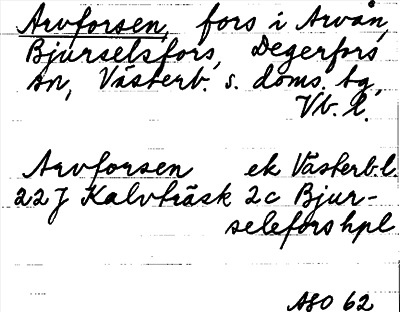 Arvforsen, fors i Arvån,
Bjurselsfors, Degerfors
sn, Västerb. s. doms. tg,
Vb. l.
Arvforsen ek Västerb.l.
22J Kalvträsk 2c Bjur-
seleforshpl
ASO 62